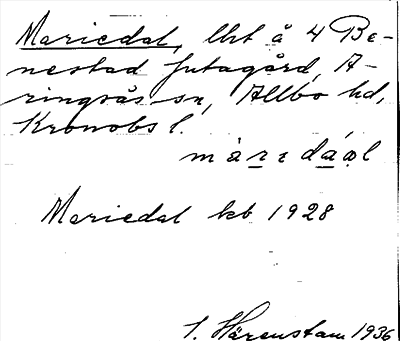 Mariedal, lht å 4 Be-
nestad Jutagård, A-
ringsås sn, Allbo hd,
Kronobs l.
Mariedal kb 1928
1. Härenstam 1936